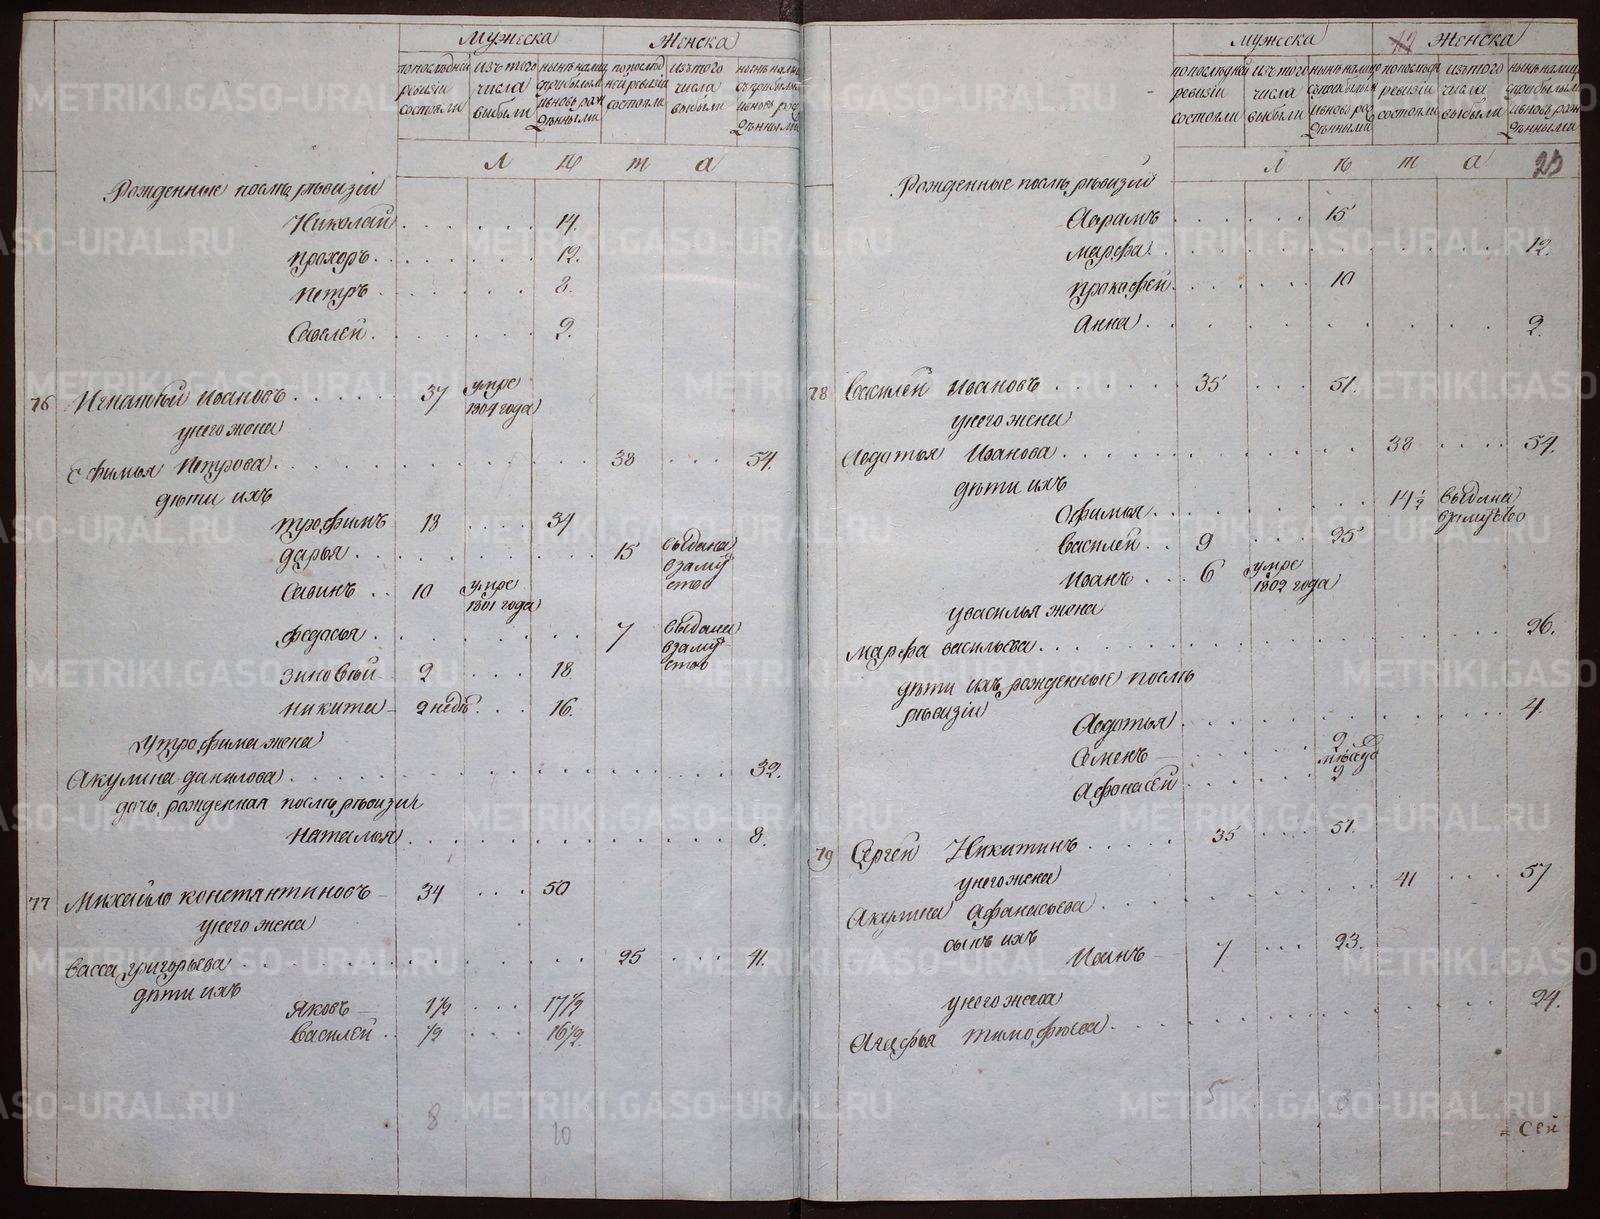 Мужеска Женска
по последней ревизiи состояли
изъ того числа выбыли
нынѣ на лицо съ прибылыми и вновь рожденными
по последней ревизiи состояли
изъ того числа выбыли
нынѣ на лицо съ прибылыми и вновь рожденными
Л ѣ т а
Рожденные послѣ ревизiи
Николай 14.
Прохоръ 12.
Петръ 8.
Савелей 2.
76 Игнатѣй Ивановъ 37 умре 1804 года
у него жена
Ефимья Петрова 38 54.
дѣти ихъ
Трофимъ 18 34
Дарья 15 выдана взамуство
Савинъ 10 умре 1801 года
Федосья 7 выдана взамуство
Зиновѣй 2 18.
Никита 2 недѣ. 16.
У Трофима жена
Акулина Данилова 32.
дочь рожденная послѣ ревизiи
Наталья 8.
77 Михайло Константиновъ 34 50
у него жена
Васса Григорьева 25 41.
дѣти ихъ
Яковъ 1½ 17½
Василей ½ 16½.
8 10
Мужеска 12 Женска
по последней ревизiи состояли
изъ того числа выбыли
нынѣ на лицо съ прибылыми и вновь рожденными
по последней ревизiи состояли
изъ того числа выбыли
нынѣ на лицо съ прибылыми и вновь рожденными
Л ѣ т а
Рожденные послѣ ревизiи
Аврамъ 15
Марфа 12.
Прокофей 10
Анна 2.
78 Василей Ивановъ 35 51.
у него жена
Авдотья Иванова 38 54.
дѣти ихъ
Офимья 14½ выдана взамуство
Василей 9 25
Иванъ 6 умре 1802 года
у Василья жена
Марфа Васильева 26.
дѣти ихъ рожденные послѣ ревизiи
Авдотья 4.
Семенъ
Афонасей 2
79 Сергей Никитинъ 35 51.
у него жена
Акулина Афанасьева 41 57
сынъ ихъ
Иванъ 7 23.
у него жена
Агафья Тимофѣева 24.
5
= Сей
METRIKI.GASO-URAL.RU